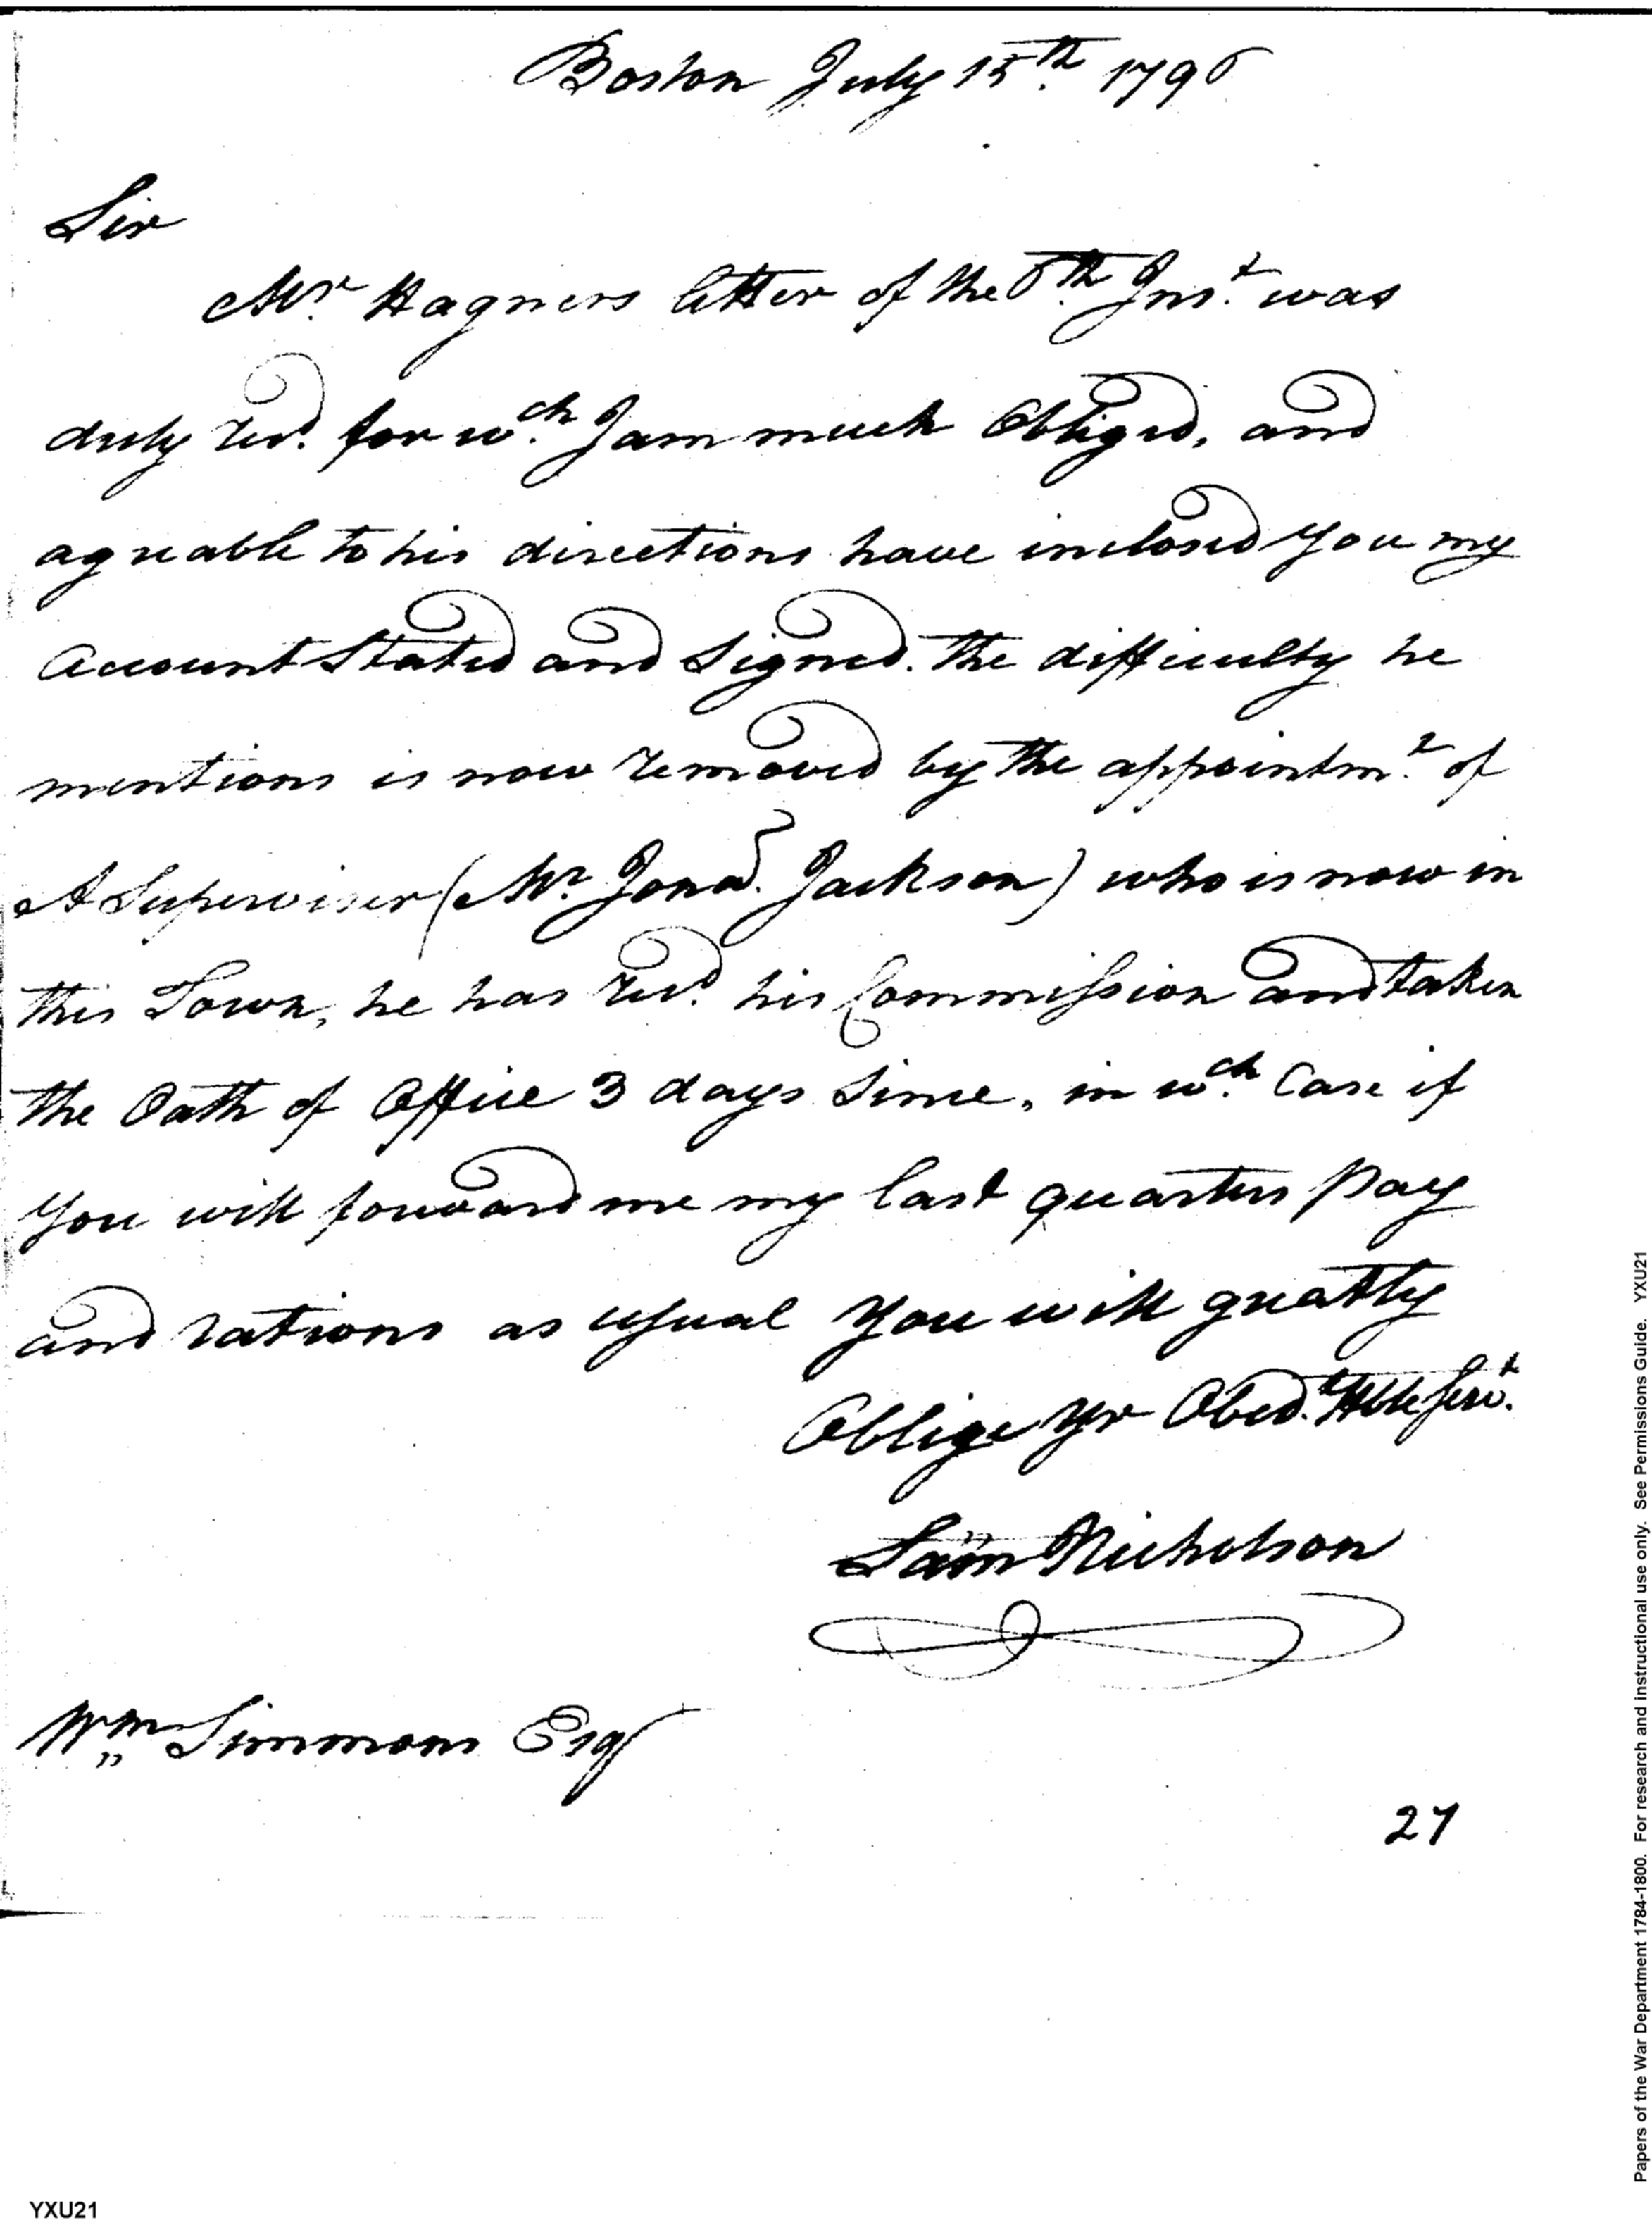 Boston July 15th. 1796
Sir
Mr. Hagners letter of the 6th. Inst. was
duly recd. for wch. I am much Obliged, and
agreable to his directions have inclosed you my
Account Stated and Signed. the difficulty he
mentions is now removed by the appointmt. of
A Superviser (Mr. Jona. Jackson) who is now in
this Town, he has recd. his Commission and taken
the Oath of Office 3 days Since, in wch. Case if
you will forward me my last quarters pay
and rations as usual you will greatly
Oblige yr Obedt. Hble Servt.
Sam Nicholson
Wm Simmons Esqr
27
Papers of the War Department 1784-1800. For research and instructional use only. See Permissions Guide. YXU21
YXU21